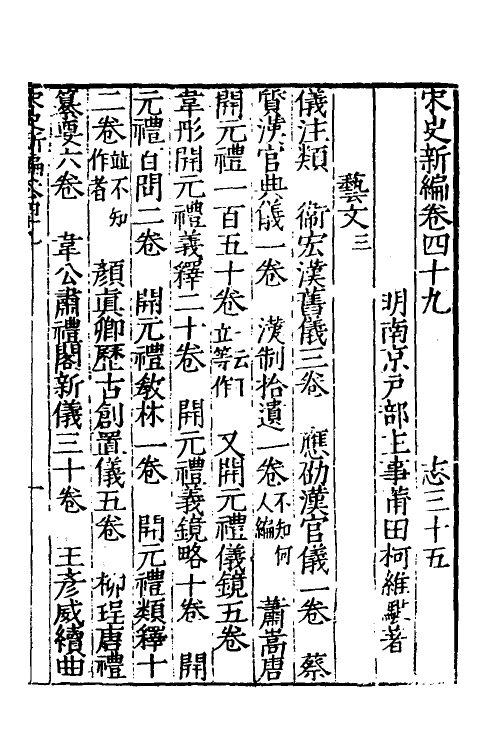 宋史新編卷四十九　志三十五
明南京戶部主事莆田柯維騏著
藝文三
儀注類　衞宏漢舊儀三卷　應劭漢官儀一卷　蔡
質漢官典儀一卷　漢制拾遺一卷不知何人編　蕭嵩唐
開元禮一百五十卷一云王立等作　又開元禮儀鏡五卷
韋彤開元禮義釋二十卷　開元禮義鏡略十卷　開
元禮百問二卷　開元禮教林一卷　開元禮類釋十
二卷並不知作者　顏真卿歷古創置儀五卷　柳珵唐禮
纂要六卷　韋公肅禮閣新儀三十卷　王彥威續曲
宋史新編卷四十九　一